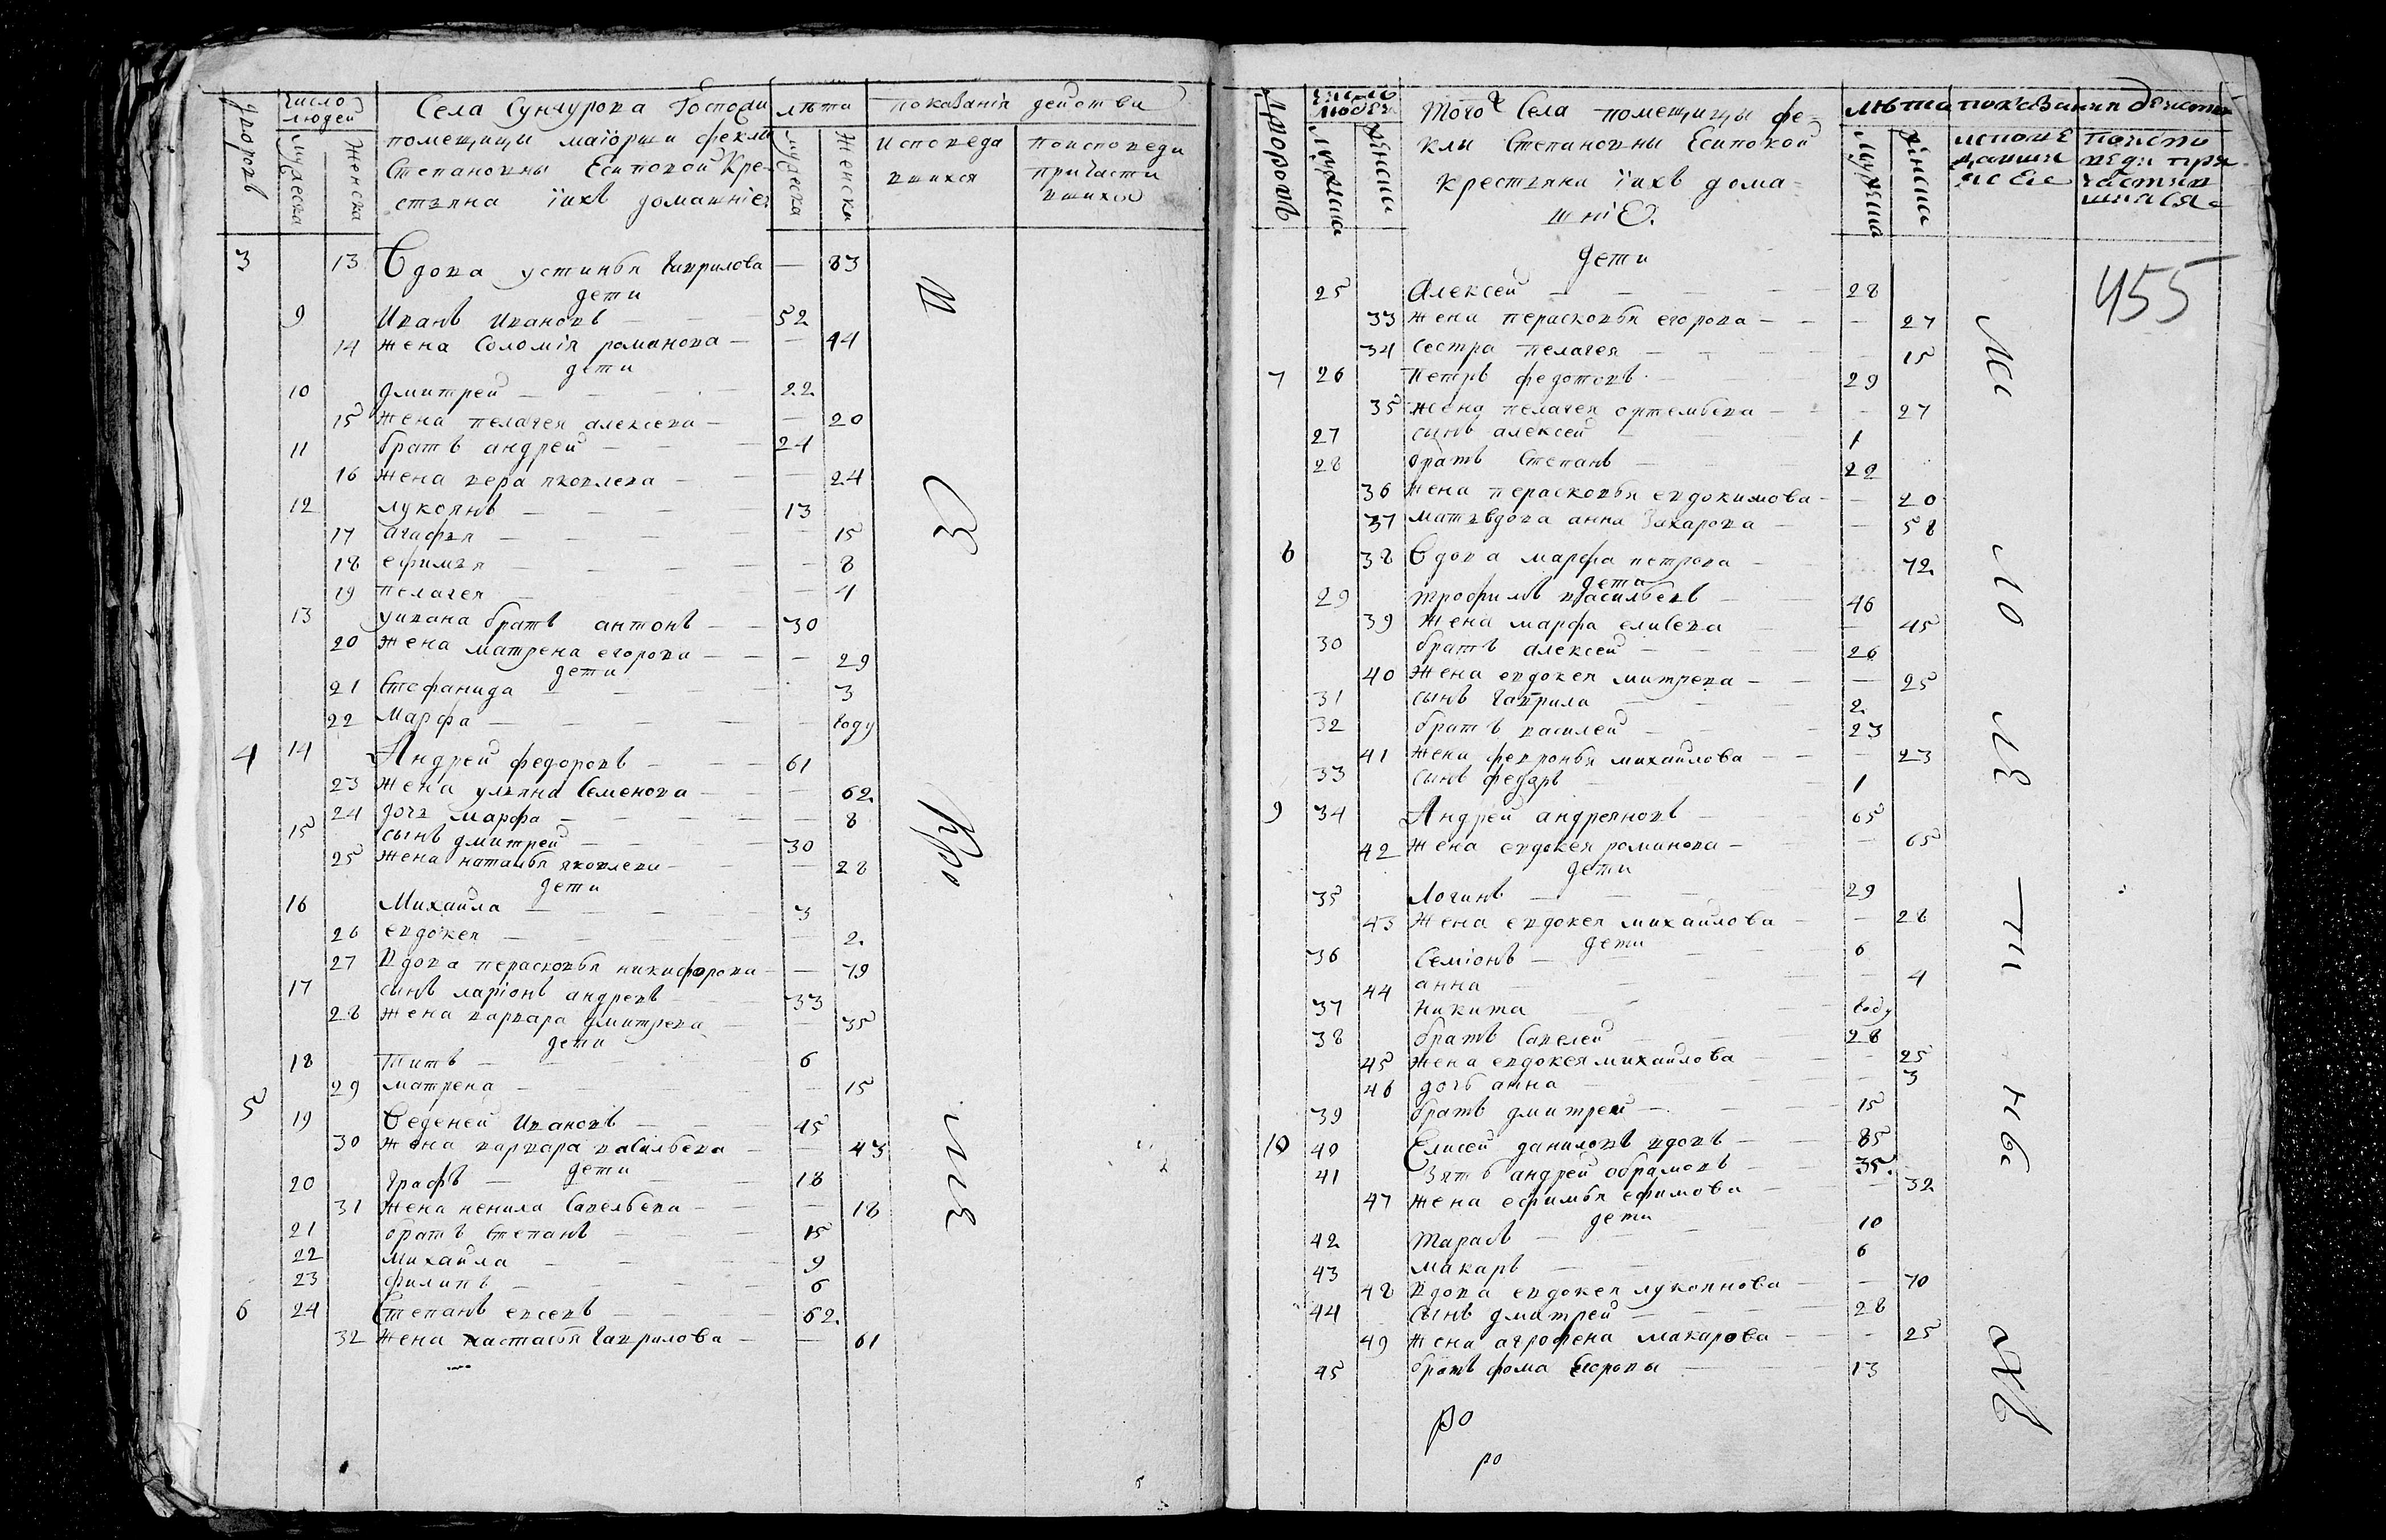 дворовъ
число людей
мужеска
женска
Села Сунчурова Госпожи
помещицы маіорши феклы
Степановны Есиповой кре
стьяна ïихъ домашніе
лѣта
мужеска
женска
показанія действи
исповеда вшихся
поисповеди причасти вшихся
3 13 Вдова устинья Гаврилова — 83
дети
9 Иванъ Ивановъ — 52
14 жена Соломія романова — 44
дети
10 дмитрей — 22
15 жена пелагея алексева — 20
11 братъ андрей — 24
16 жена вера яковлева — 24
12 лукоянъ — 13
17 агафья — 15
18 ефимья — 8
19 пелагея — 4
13 уивана братъ антонъ — 30
20 жена матрена егорова — 29
дети
21 Стефанида — 3
22 Марфа — году
4 14 Андрей федоровъ — 61
23 жена ульяна Семенова — 62
24 дочь марфа — 8
15 сынъ дмитрей — 30
25 жена наталья яковлева — 28
дети
16 Михаила — 3
26 евдокея — 2
27 Вдова перасковья никифорова — 79
17 сынъ ларіонъ андревъ — 33
28 жена варвара дмитрева — 35
дети
18 титъ — 6
29 матрена — 15
5 19 Веденей Ивановъ — 45
30 жена варвара васильева — 43
дети
20 Графъ — 18
31 жена ненила Савельева — 18
21 братъ Степанъ — 15
22 михаила — 9
23 филипъ — 6
6 24 Степанъ евсевъ — 62
32 жена настасья Гаврилова — 61
дворовъ
число людей
мужеска
женска
того Села помещицы фе-
клы Степановны Есиповой
крестьяни ïихъ дома-
шніе.
лѣта
мужеска
женска
показания действ
исповедавшиеся
455
дети
25 Алексей — 28
33 жена перасковья егорова — 27
34 сестра пелагея — 15
7 26 Петръ федотовъ — 29
35 жена пелагея ортемьева — 27
27 сынъ алексей — 1
28 братъ Степанъ — 22
36 жена перасковья евдокимова — 20
37 мать вдова анна Захарова — 58
8 38 Вдова марфа петрова — 72
дети
29 трофимъ васильевъ — 46
39 жена марфа елисева — 45
30 братъ алексей — 26
40 жена евдокея митрева — 25
31 сынъ гаврила — 2
32 братъ василей — 23
41 жена февронья михаилова — 23
33 сынъ федоръ — 1
9 34 Андрей андреяновъ — 65
42 жена евдокея романова — 65
дети
35 Логинъ — 29
43 жена евдокея михаилова — 28
дети
36 Семіонъ — 6
44 анна — 4
37 Никита — году
38 братъ Савелей — 28
45 жена евдокея михаилова — 25
46 дочь анна — 3
39 братъ дмитрей — 15
10 40 Елисей даниловъ вдовъ — 85
41 Зять андрей обрамовъ — 35
47 жена ефимья ефимова — 32
дети
42 Тарасъ — 10
43 макаръ — 6
48 вдова евдокея лукоянова — 70
44 Сынъ дмитрей — 28
49 жена агрофена макарова — 25
45 братъ фома — 13
ро
ро